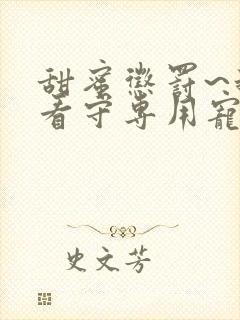 甜蜜惩罚~
看守专用宠
史文芳